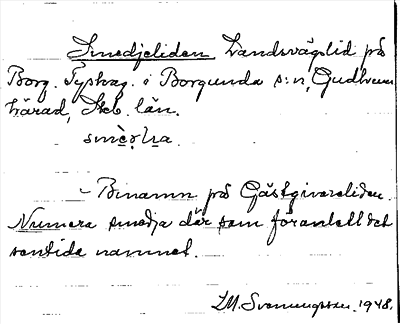 Smedjeliden Landsvägslid på
Borg. Tyskag. i Borgunda s:n, Gudhems
härad, Skb. län.
– Binamn på Gästgivareliden.
Numera smedja där som föranlett det
samtida namnet.
J.M. Svenungsson. 1948.